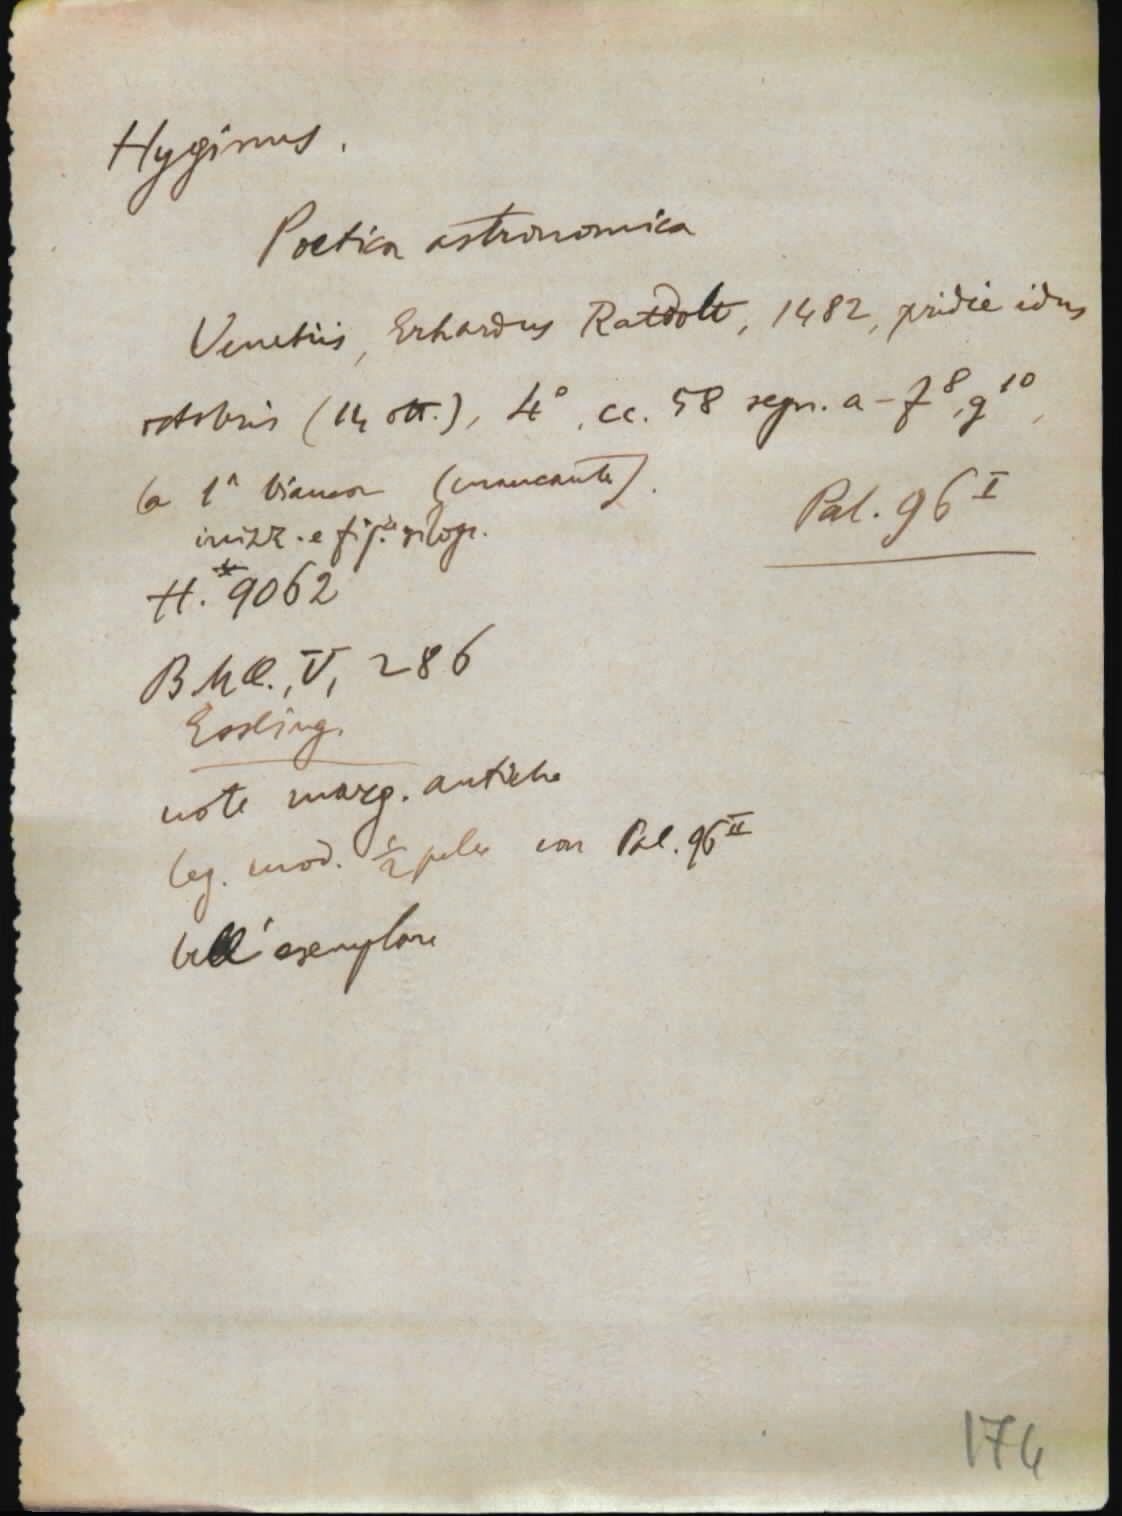 Hyginus.
Poetica astronomica
Venetiis, Erhardus Ratdolt, 1482, pridie idus
octobris (14 ott.), 4°, cc. 58 segn. a-f⁸, g¹⁰,
la 1ª bianca (mancante).
Pal. 96 I
inizz. e fig. silogr.
H.* 9062
BMC., V, 286
Essling.
note marg. antiche
leg. mod. ½ pelle con Pal. 96 II
bell'esemplare
174